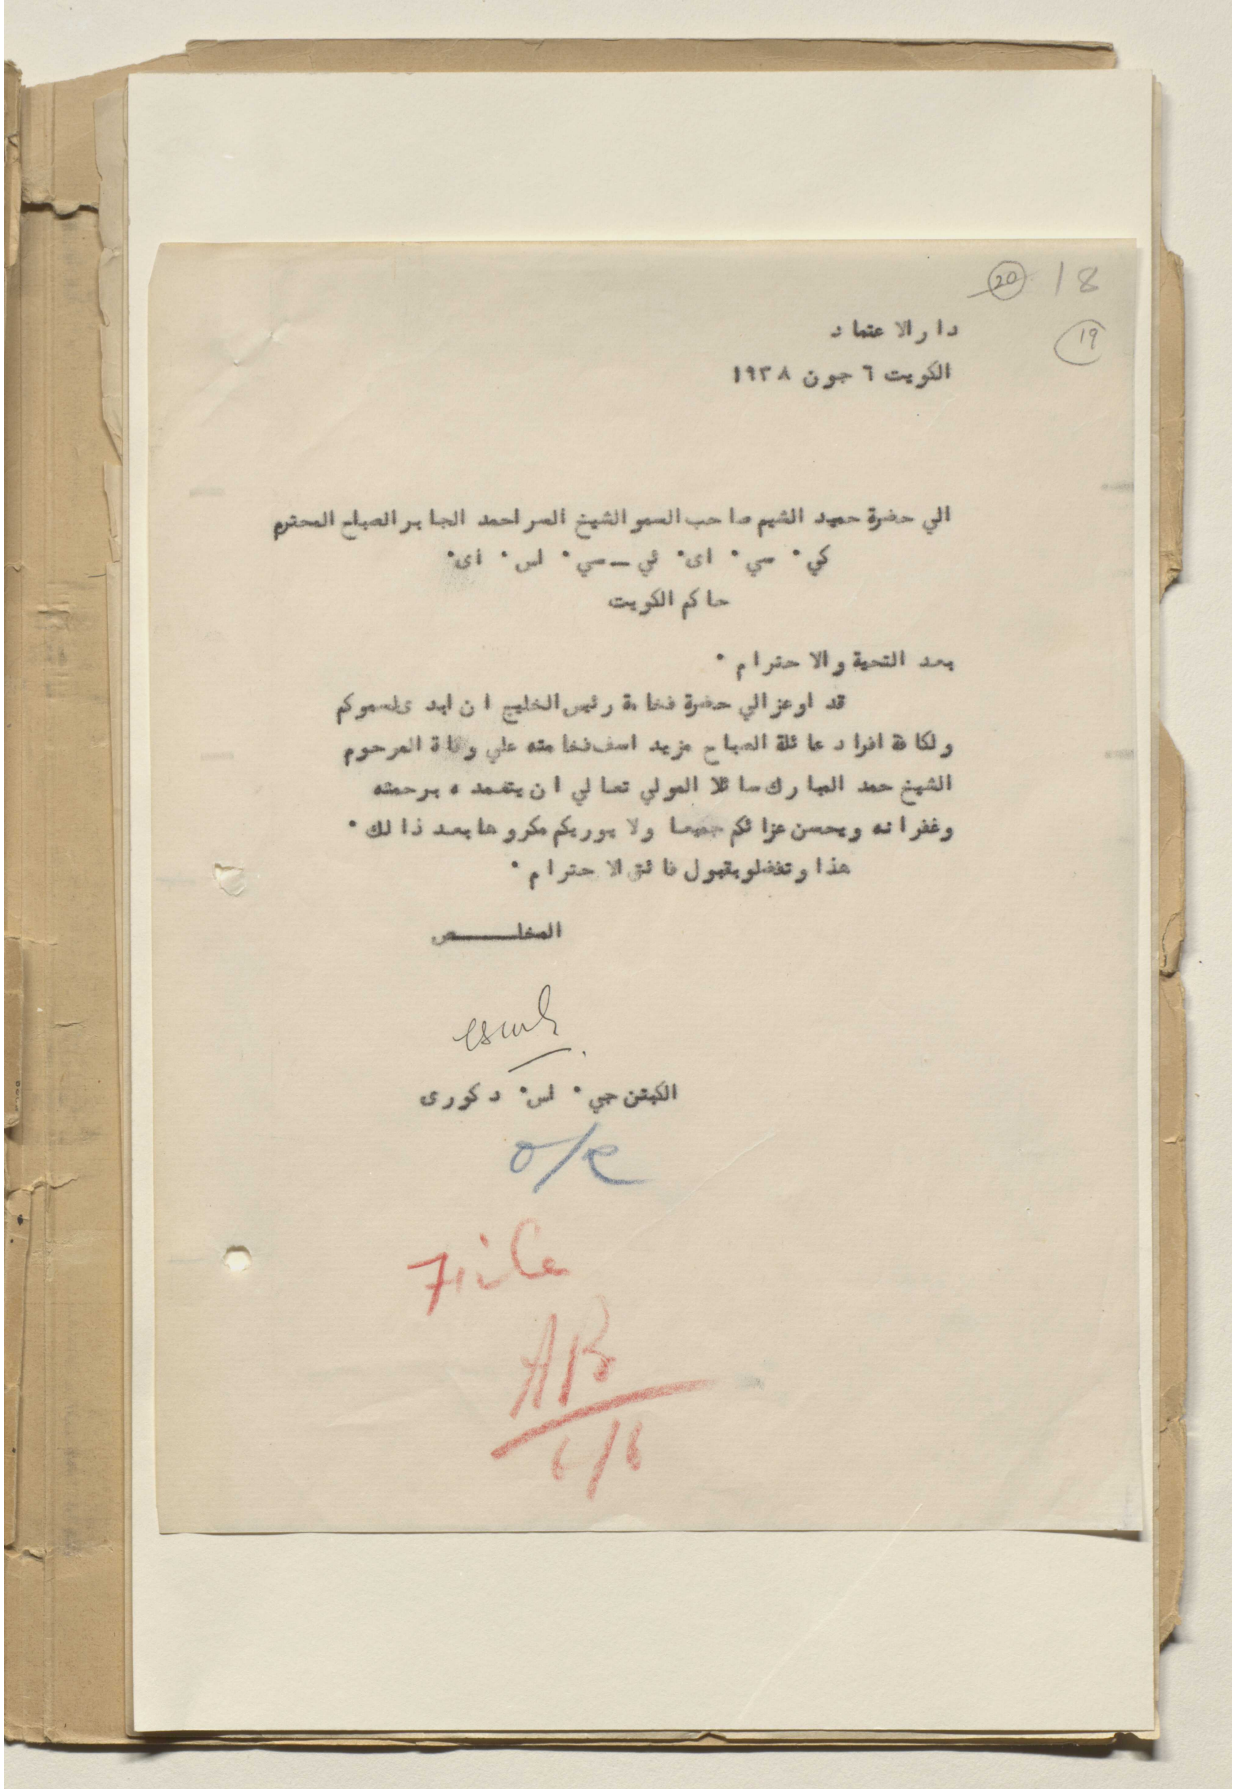 20 18
19
دار الاعتماد
الكويت ٦ جون ١٩٣٨
الي حضرة حميد الشيم صاحب السمو الشيخ السر احمد الجابر الصباح المحترم
كي٠ سي٠ اى٠ ئي — سي٠ اس٠ اى٠
حاكم الكويت
بعد التحية والاحترام ٠
قد اوعز الي حضرة فخامة رئيس الخليج ان ابدى لسموكم
ولكافة افراد عائلة الصباح مزيد اسف فخامته علي وفاة المرحوم
الشيخ حمد المبارك سائلا المولي تعالي ان يتغمده برحمته
وغفرانه ويحسن عزائكم جميعا ولا يوريكم مكروها بعد ذالك ٠
هذا وتفضلو بقبول فائق الاحترام ٠
المخلـــــص
الكبتن جي٠ اس٠ دكورى
O/R
File
AB
6/6